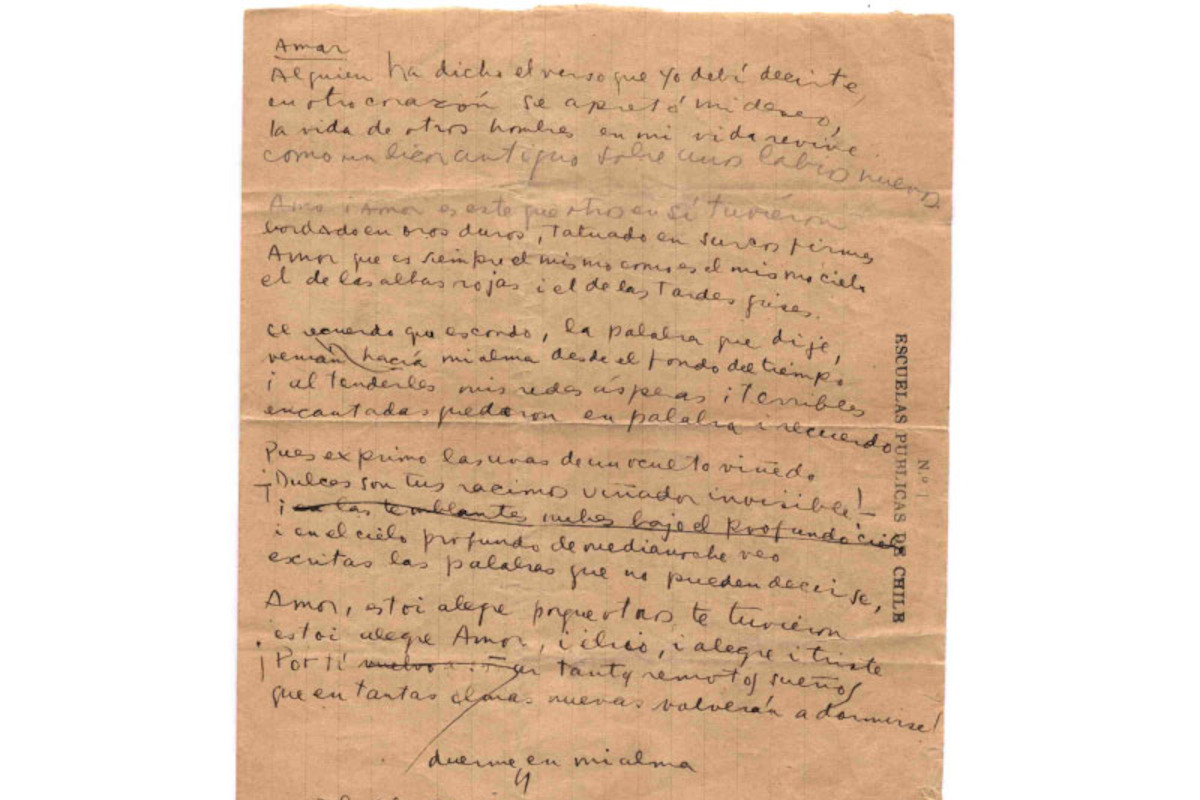 Amar
Alguien ha dicho el verso que yo debí decirte,
en otro corazón se apretó mi deseo,
la vida de otros hombres en mi vida revive
como un licor antiguo sobre unos labios nuevos
Amo i Amor es este que otros en sí tuvieron
bordado en oros duros, tatuado en surcos firmes
Amor que es siempre el mismo como es el mismo cielo
el de las albas rojas i el de las tardes grises.
El recuerdo que escondo, la palabra que dije,
venían hacia mi alma desde el fondo del tiempo
i al tenderles mis redes ásperas i terribles
encantadas quedaron en palabra i recuerdo
Pues exprimo las uvas de un oculto viñedo
¡Dulces son tus racimos viñador invisible!
i en las temblantes nubes bajo el profundo cielo
i en el cielo profundo de medianoche veo
escritas las palabras que no pueden decirse,
Amor, estoi alegre porque otros te tuvieron
estoi alegre Amor, i i alegre i triste
¡Por ti vuelvo a tanto remotos sueños
que en tantas almas nuevas volverán a dormirse!
duerme en mi alma
ESCUELAS PUBLICAS DE CHILE
N.º 1